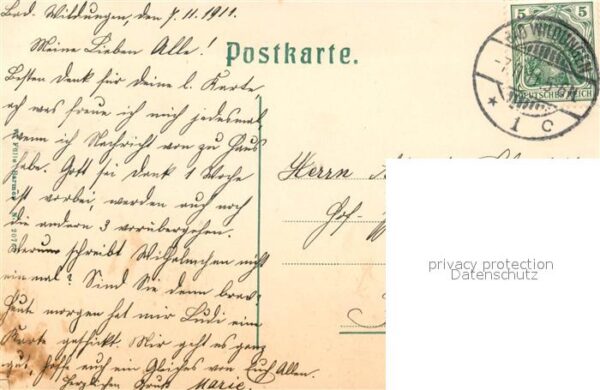 Bad. Wildungen, den 7.11.1911.
Meine Lieben Alle!
Besten Dank für deine l. Karte
ach was freue ich mich jedesmal,
wenn ich Nachricht von zu Haus
habe. Gott sei Dank 1 Woche
ist vorbei, werden auch noch
die andern 3 vorübergehen.
Warum schreibt Wilhelmchen nicht
ein mal? Sind Sie denn brav?
Heute morgen hat mir Ludi eine
Karte geschickt. Mir geht es ganz
gut, hoffe auch ein Gleiches von Euch Allen.
Herzlichen Gruß Marie.
Postkarte.
5 5
BAD WILDUNGEN
DEUTSCHES REICH
* 1 c
Herrn
Hof-
privacy protection
Datenschutz